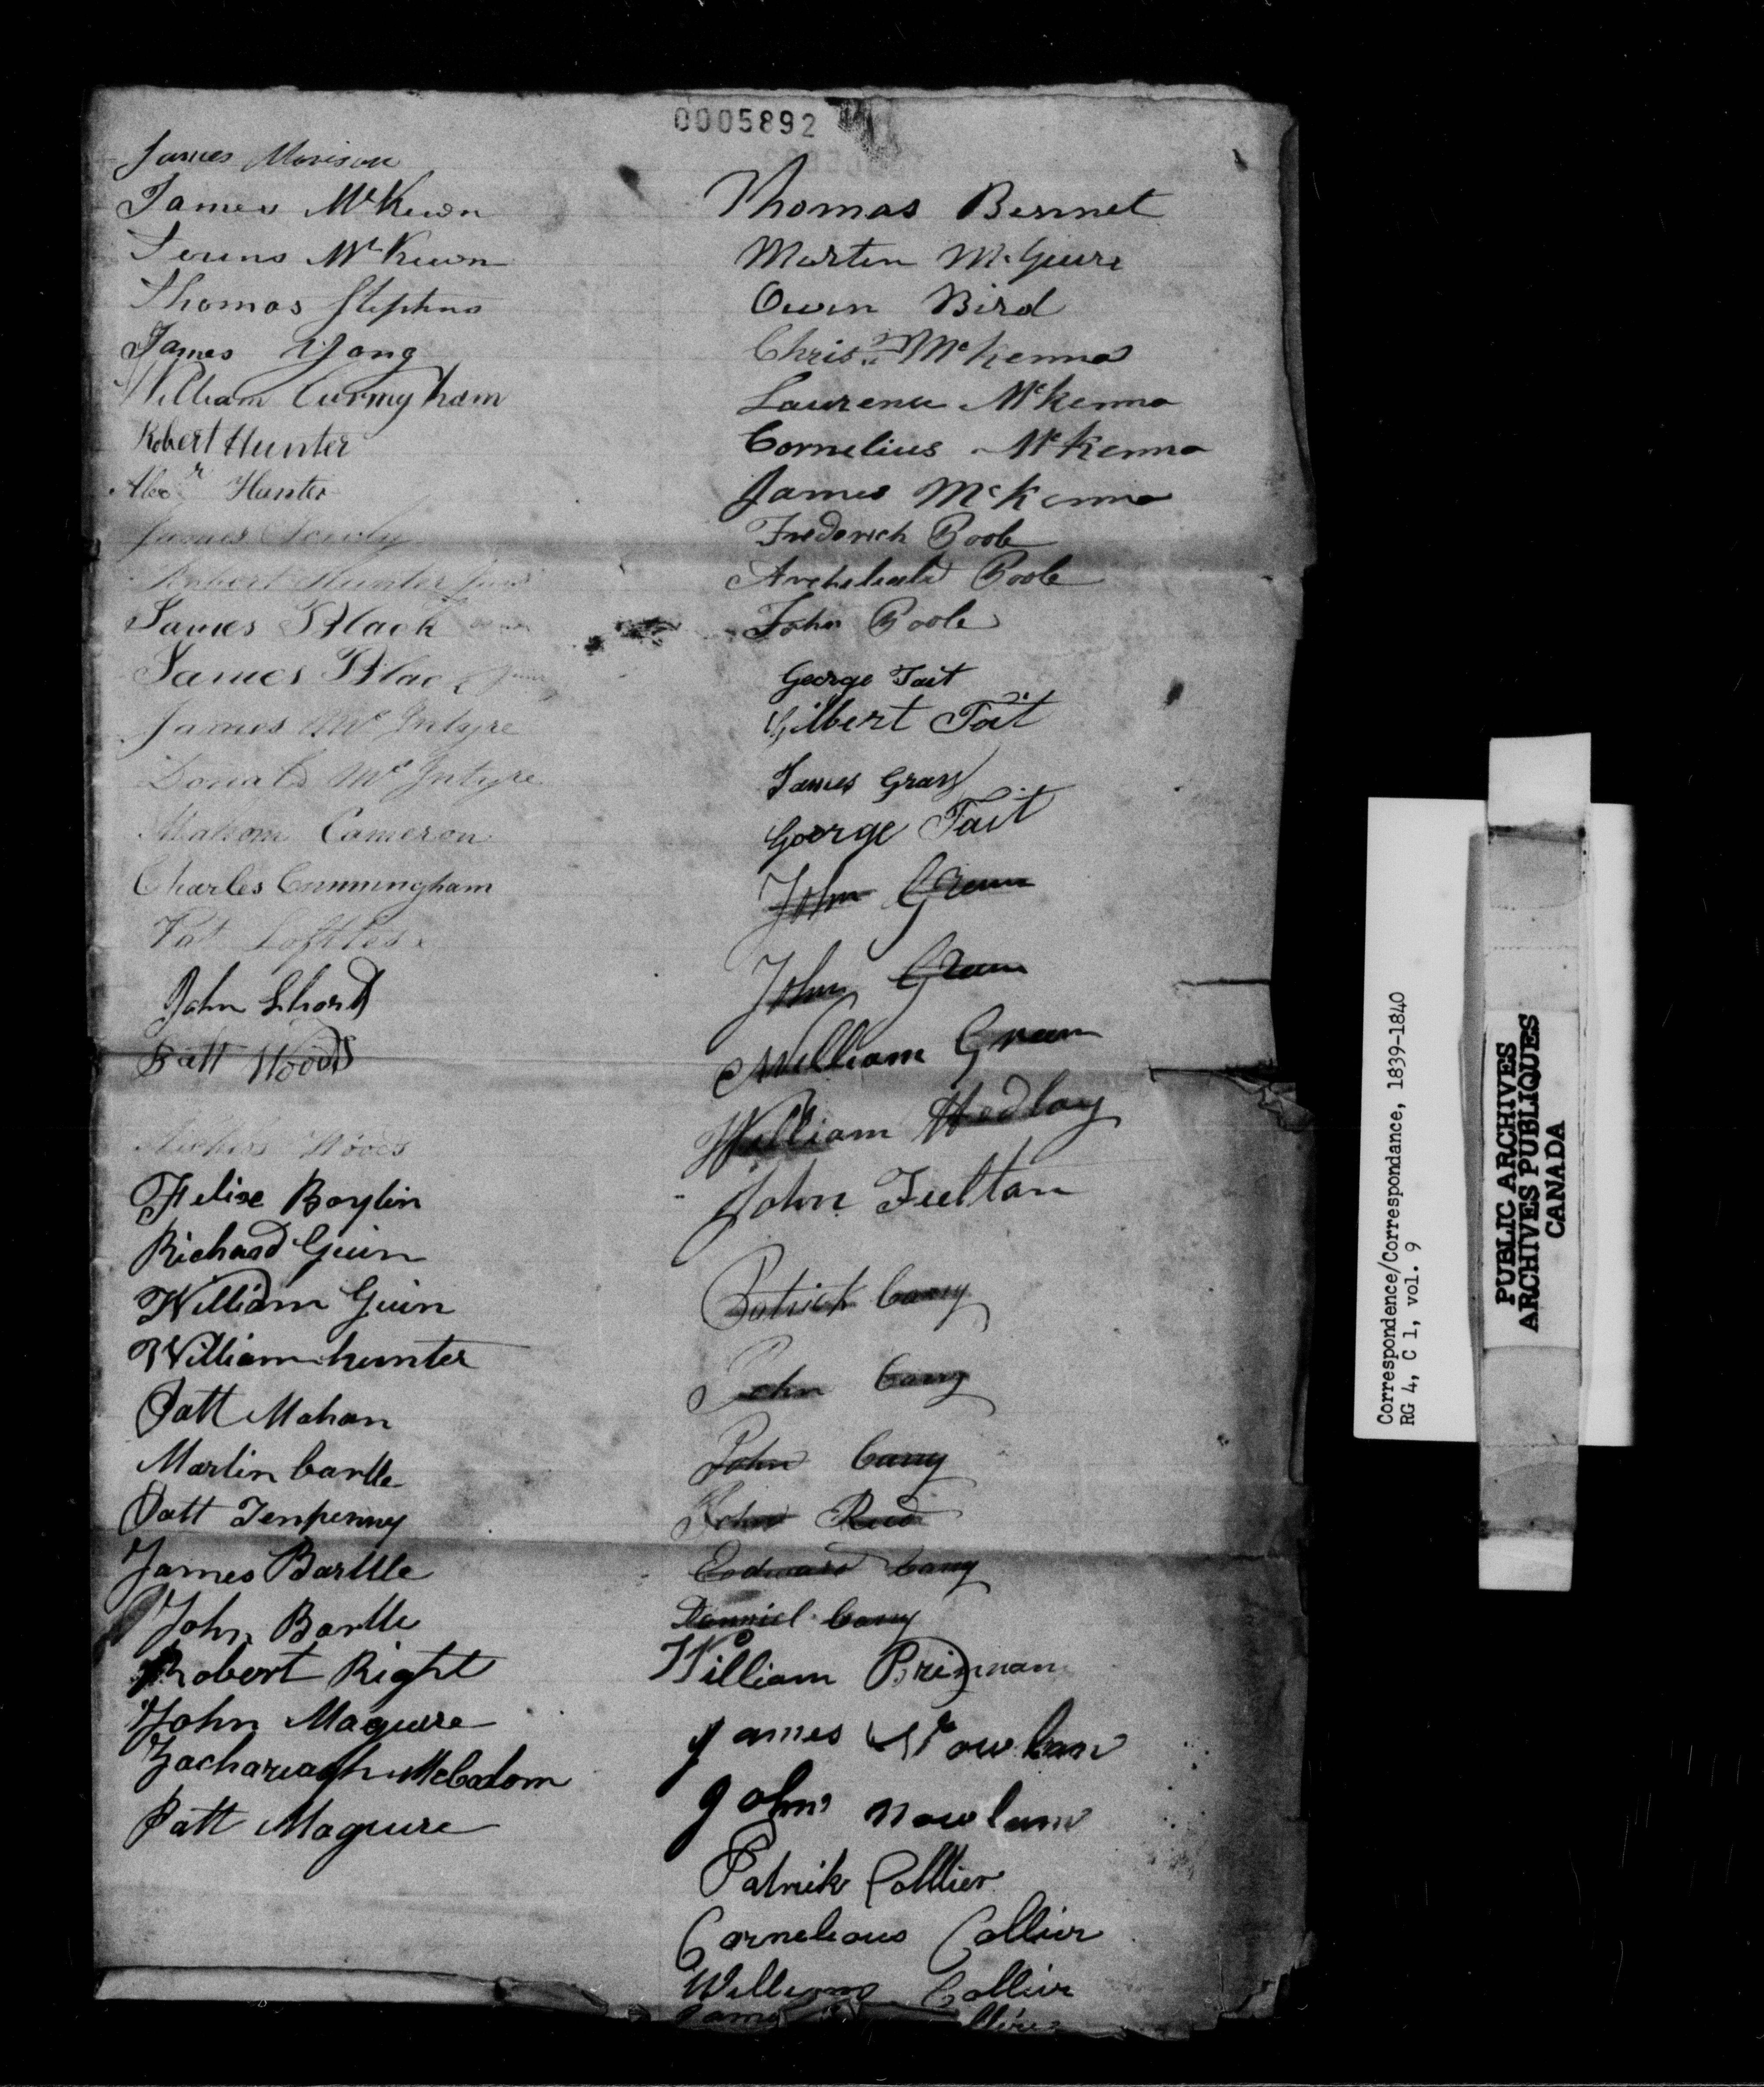 0005892
James Morison
James McKewn
McKewn
Thomas Stephns
James Yong
William Curnnyham
Robert Hunter
Alexr Hunter
James
Robert Hunter Junr
James Black
James Black
James McIntyre
Donald McIntyre
Malcom Cameron
Charles Cunningham
Pat
John Short
Patt Woods
Woods
Felixe Boylin
Richard Guin
William Guin
William hunter
Patt Mahan
Martin Cartle
Patt Tenpenny
James Barttle
John Bartle
Robert Right
John Maguire
Zachareaugh McCadom
Patt Maguire
Thomas Bennet
Martin McGuire
Owen Bird
Chrisr McKenna
Laurence McKenna
Cornelius McKenna
James McKenna
Frederick Poole
Archibald Poole
John Poole
George Tait
Gilbert Tait
James Gray
George Tait
John Green
John Green
William Green
William Hedlay
John Fultan
Patrick Cary
John Cary
John Cary
John Reed
Edward Cary
Danniel Cary
William Brinnan
James Nowlan
John Nowlan
Patrik Colllier
Cornelious Collier
William Collier
James
Correspondence/Correspondance, 1839-1840
RG 4, C 1, vol. 9
PUBLIC ARCHIVES
ARCHIVES PUBLIQUES
CANADA